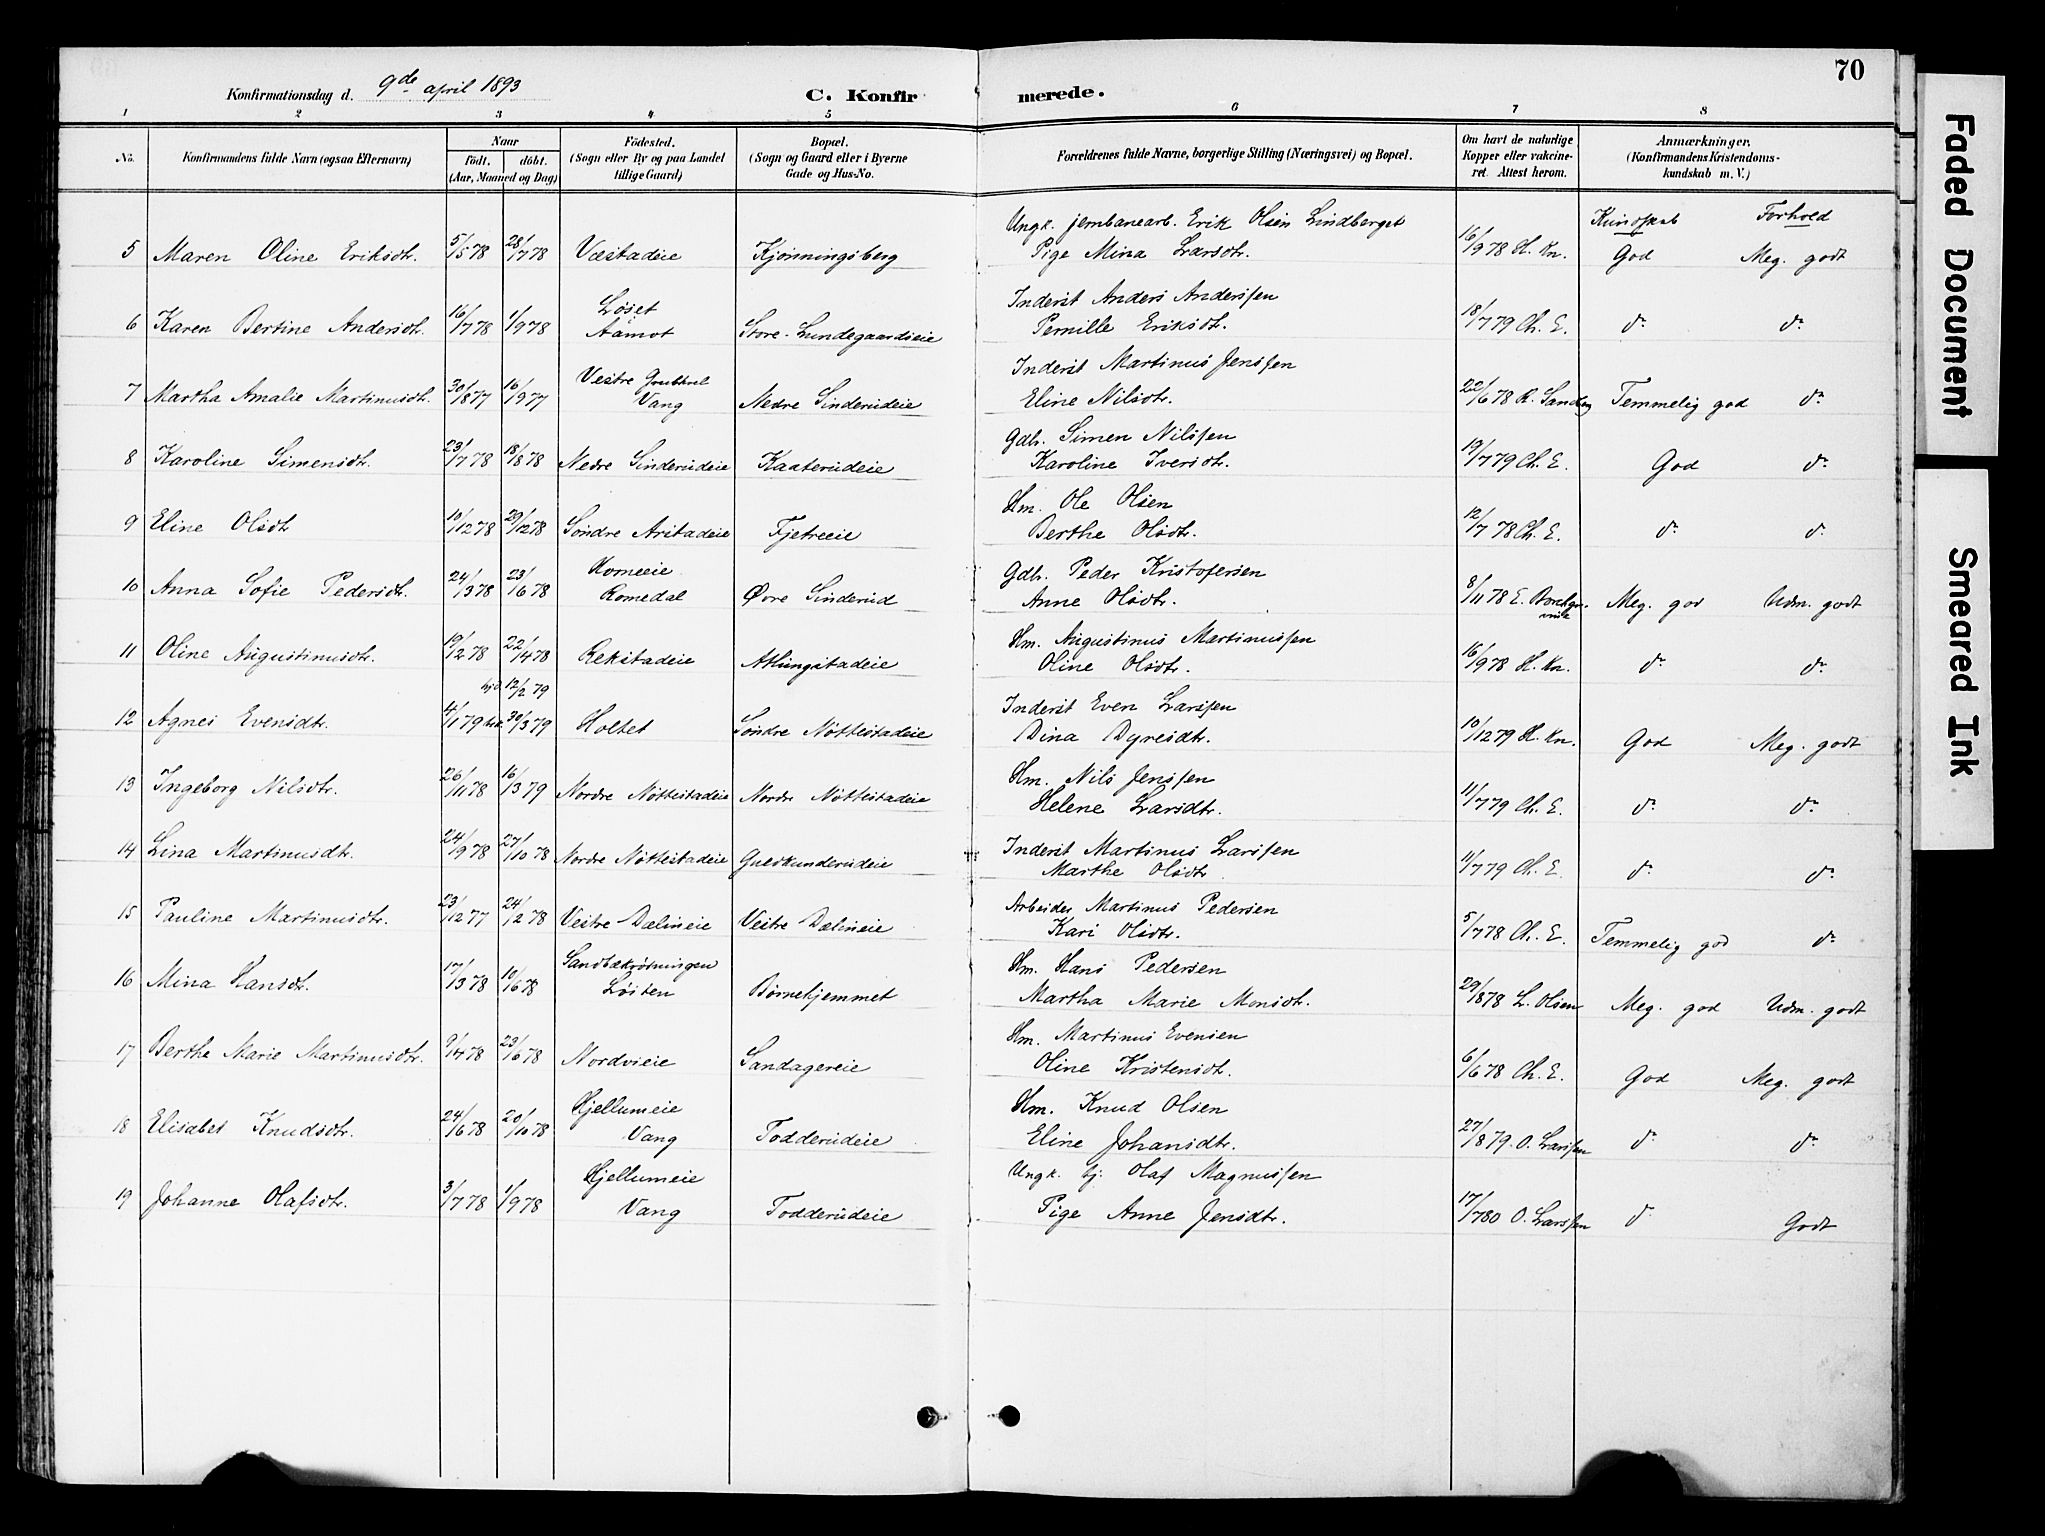 70
Konfirmationsdag d. 9de april 1893
C. Konfirmerede.
1 2 3 4 5 6 7 8
No.
Konfirmandens fulde Navn (ogsaa Efternavn)
Naar
födt. döbt.
(Aar, Maaned og Dag)
Födested.
(Sogn eller By og paa Landet
tillige Gaard)
Bopæl.
(Sogn og Gaard eller i Byerne
Gade og Hus-No.
Forældrenes fulde Navne, borgerlige Stilling (Næringsvei) og Bopæl.
Om havt de naturlige
Kopper eller vakcine-
ret. Attest herom.
Anmærkninger.
(Konfirmandens Kristendoms-
kundskab m. V.)
Kundskab Forhold
Ungk. jernbanearb. Erik Olsen Lindberget
5 Maren Oline Eriksdtr. 5/5 78 28/7 78 Væstadeie Kjonningsberg Pige Mina Larsdtr. 16/9 78 H. Kn. God Meg. godt
Løset Inderst Anders Anderssen
6 Karen Bertine Andersdtr. 16/7 78 1/9 78 Aamot Store-Lundegaardseie Pernille Eriksdtr. 18/7 79 Ch. E. do do
Vestre Inderst Martinus Jenssen
7 Martha Amalie Martinusdtr. 30/8 77 16/9 77 Vang Nedre Sinderudeie Eline Nilsdtr. 22/6 78 Temmelig god do
Gdbr. Simen Nilssen
8 Karoline Simensdtr. 23/7 78 18/8 78 Nedre Sinderudeie Kaaterudeie Karoline Iversdtr. 19/7 79 Ch. E. God do
Hm. Ole Olsen
9 Eline Olsdtr 10/12 78 29/12 78 Søndre Arstadeie Fjetreeie Berthe Olsdtr. 12/7 78 Ch. E. do do
Horneeie Gdbr. Peder Kristofersen
10 Anna Sofie Pedersdtr. 24/3 78 23/6 78 Romedal Øvre Sinderud Anne Olsdtr. 8/11 78 E. Borchgrevink Meg. god Udm. godt
Hm. Augustinus Martinussen
11 Oline Augustinusdtr. 19/2 78 22/4 78 Rekstadeie Atlungstadeie Oline Olsdtr. 16/9 78 H. Kn. do do
hjd. 12/2 79 Inderst Even Larssen
12 Agnes Evensdtr. 4/1 79 bek. 30/3 79 Holtet Søndre Nøttestadeie Dina Dyresdtr. 10/12 79 H. Kn. God Meg. godt
Hm. Nils Jenssen
13 Ingeborg Nilsdtr. 26/11 78 16/3 79 Nordre Nøttestadeie Nordre Nøttestadeie Helene Larsdtr. 11/7 79 Ch. E. do do
Inderst Martinus Larssen
14 Lina Martinusdtr. 24/9 78 27/10 78 Nordre Nøttestadeie Gnedkunderudeie Marthe Olsdtr 11/7 79 Ch. E. do do
Arbeider Martinus Pedersen
15 Pauline Martinusdtr. 23/12 77 24/2 78 Vestre Dælineie Vestre Dælineie Kari Olsdtr. 5/7 78 Ch. E. Temmelig god do
Sandbækrydningen Hm. Hans Pedersen
16 Mina Hansdtr. 17/3 78 10/6 78 Løiten Børnehjemmet Martha Marie Monsdtr. 29/8 78 L. Olsen Meg. god Udm. godt
Hm. Martinus Evensen
17 Berthe Marie Martinusdtr. 9/4 78 23/6 78 Nordvieie Sandagereie Oline Kristensdtr. 6/6 78 Ch. E. God Meg. godt
Hjellumeie Hm. Knud Olsen
18 Elisabet Knudsdtr. 24/6 78 20/10 78 Vang Todderudeie Eline Johansdtr. 27/8 79. O. Larssen do do
Hjellumeie Ungk. tj. Olaf Magnussen
19 Johanne Olafsdtr. 3/7 78 1/9 78 Vang Todderudeie Pige Anne Jensdtr. 17/7 80 O. Larssen do Godt
Faded Document
Smeared Ink